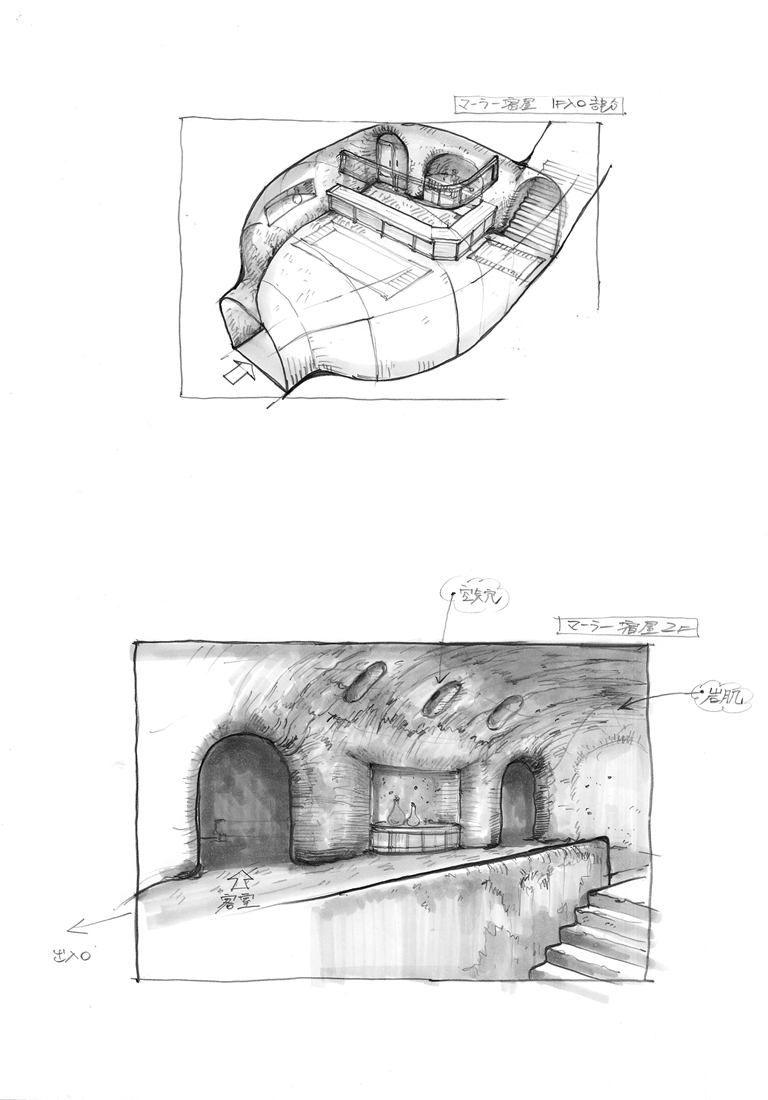 マーラー宿屋 1F入口部分
空気穴
マーラー宿屋2F
岩肌
客室
出入口